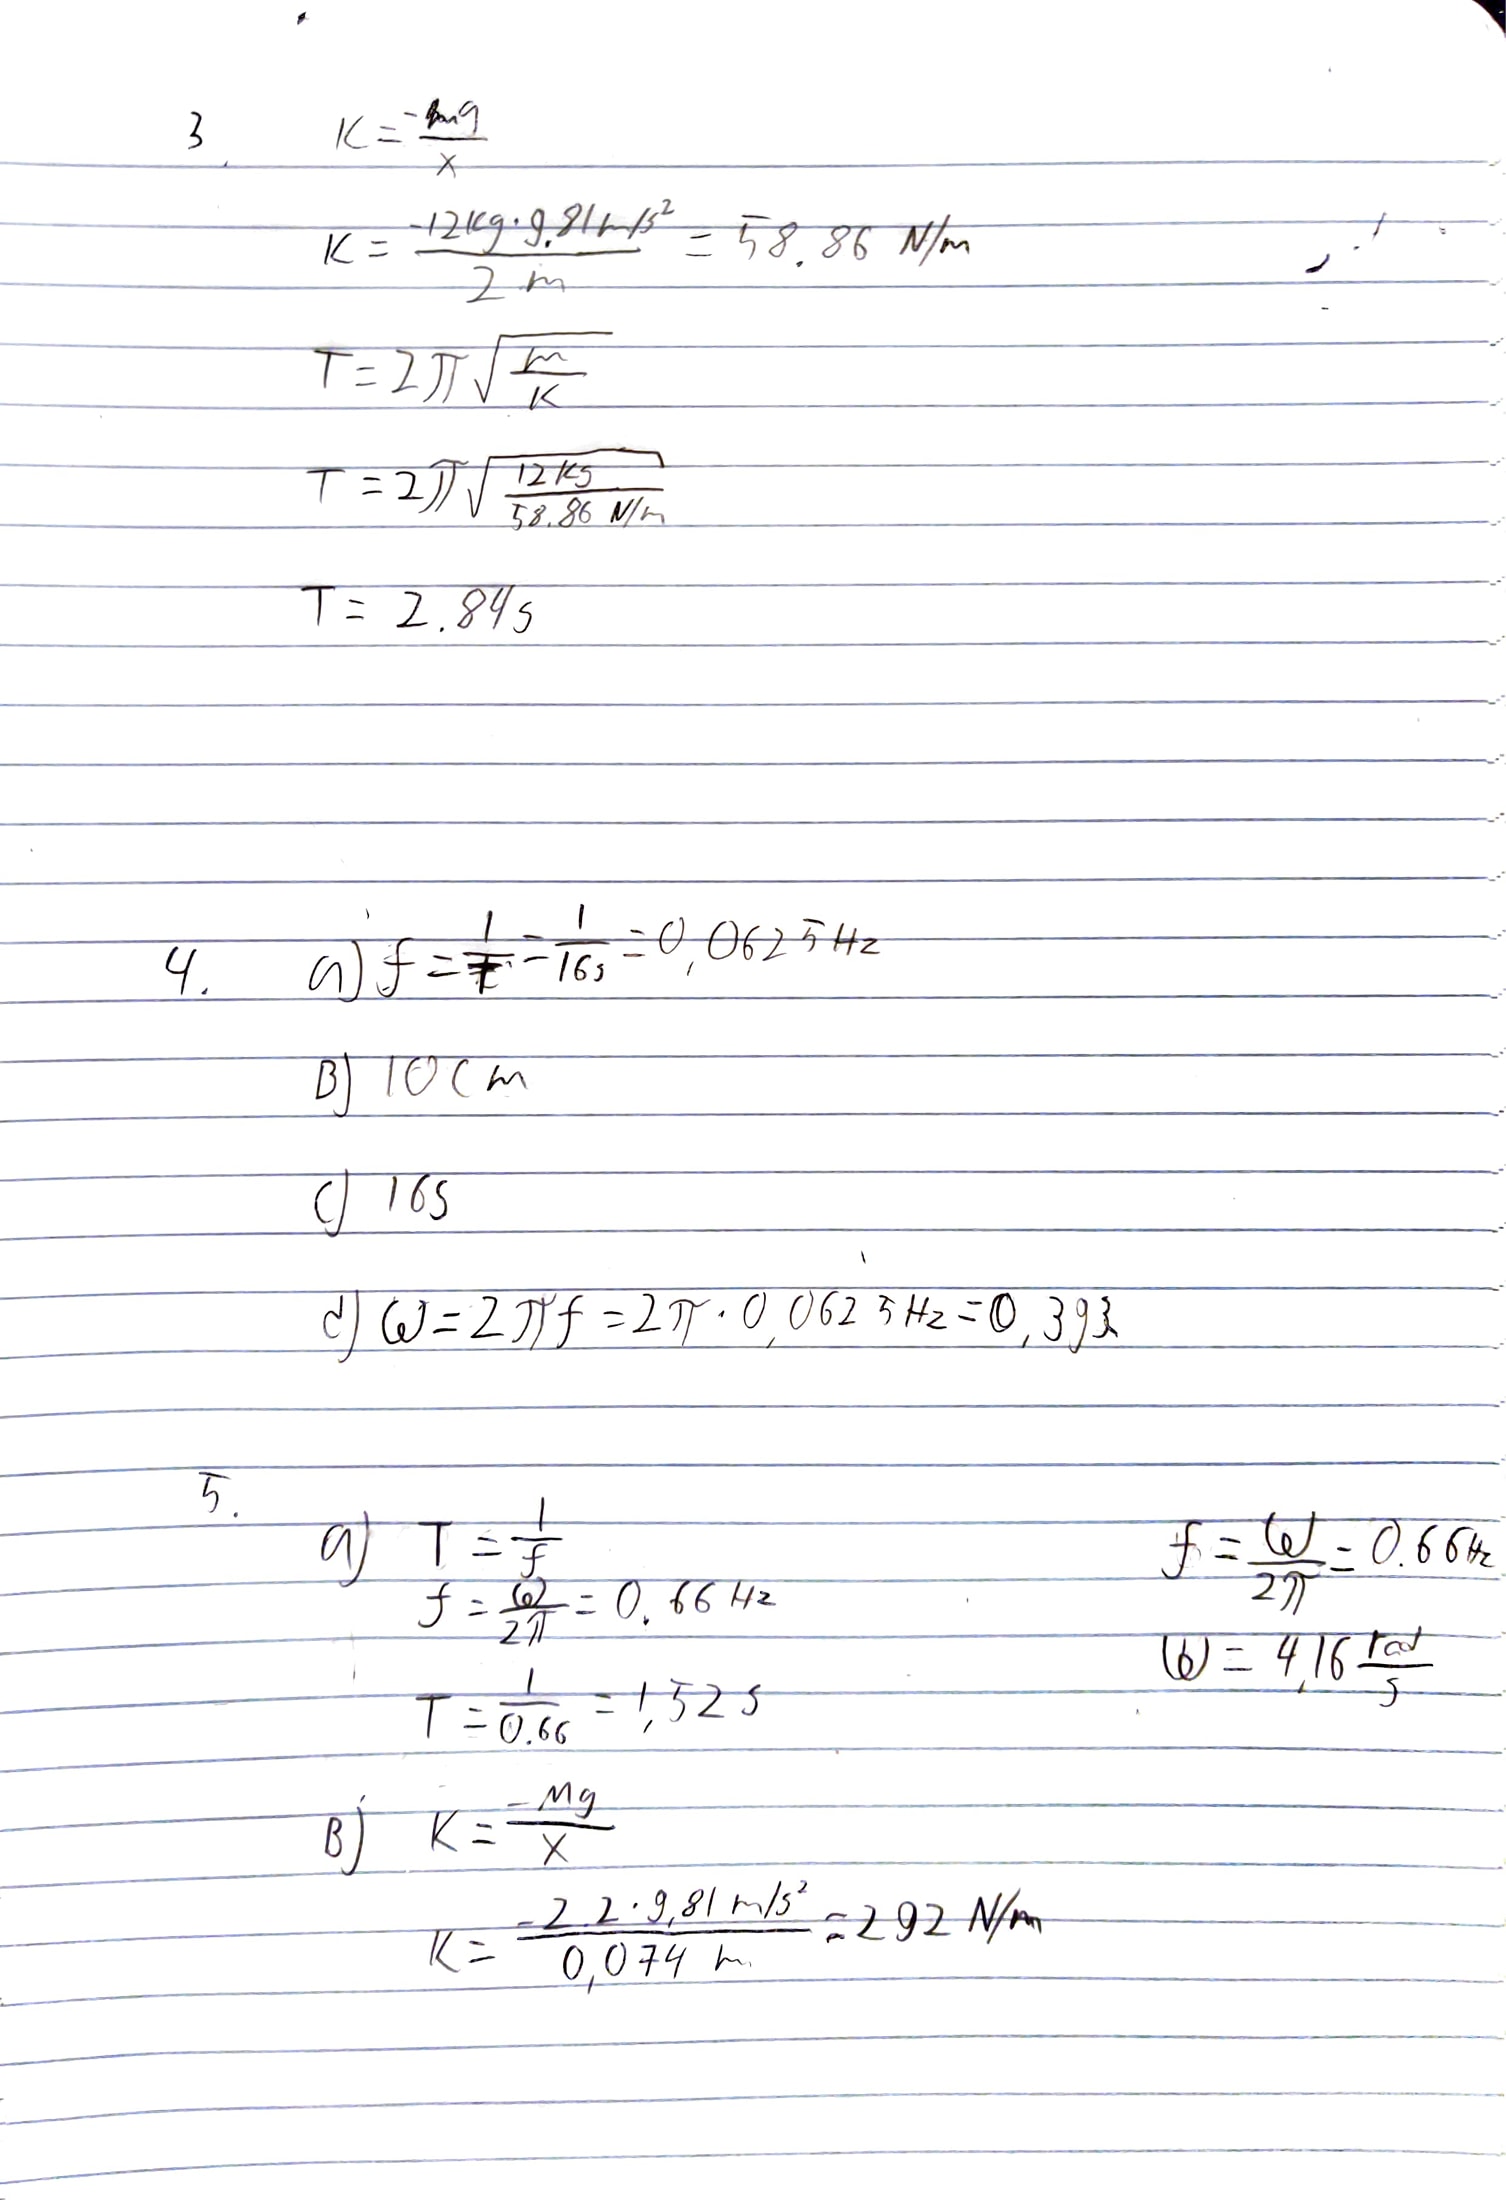 3. K = -mg/x
K = -12Kg·9.81m/s² / 2 m = 58.86 N/m
T = 2π√(m/K)
T = 2π√(12Kg / 58.86 N/m)
T = 2.84s
4. a) f = 1/T = 1/16s = 0,0625Hz
B) 10cm
c) 16s
d) ω = 2πf = 2π·0,0625Hz = 0,393
5.
a) T = 1/f
f = ω/2π = 0.66Hz
f = ω/2π = 0.66 Hz
ω = 4,16 rad/s
T = 1/0.66 = 1,52 s
B) K = -Mg/x
K = -2.2·9,81 m/s² / 0,074 m = 292 N/m